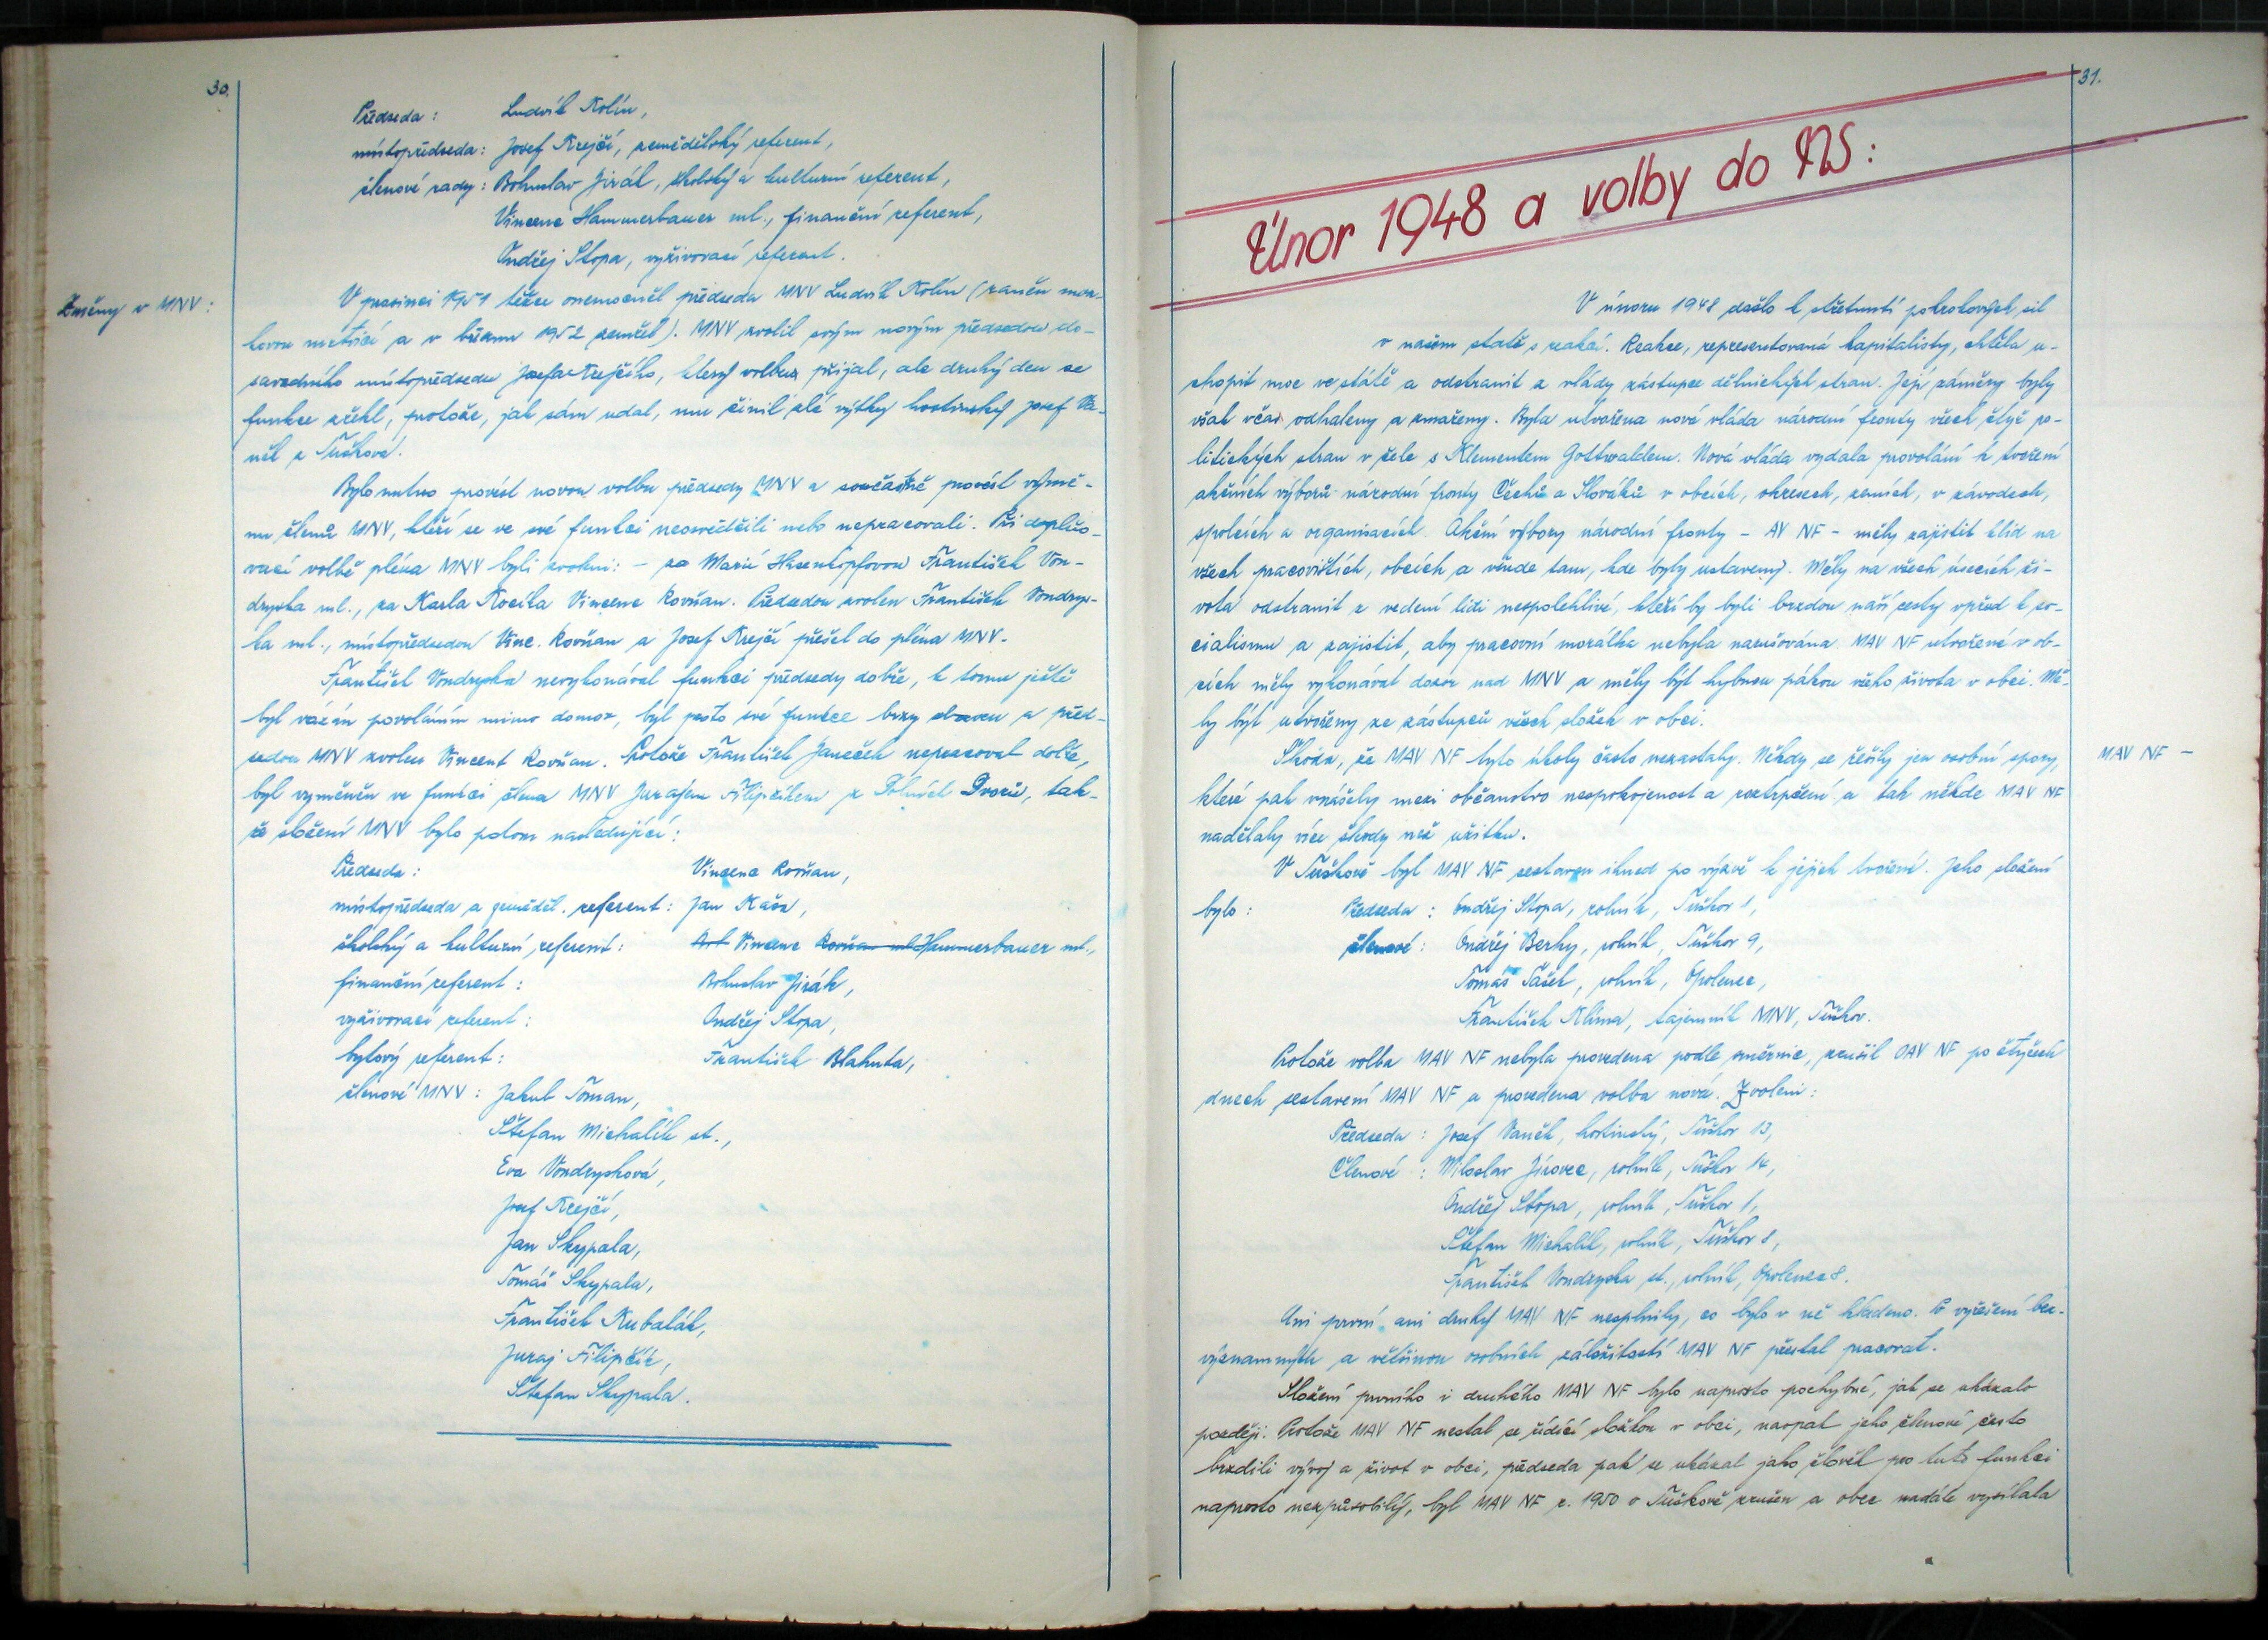 30.
Předseda : Ludvík Kolín,
místopředseda : Josef Krejčí, zemědělský referent,
členové rady : Bohuslav Jirák, školský a kulturní referent,
Vincenc Hammerbauer ml., finanční referent,
Ondřej Stopa, vyživovací referent.
Změny v MNV :
V prosinci 1951 těžce onemocněl předseda MNV Ludvík Kolín (raněn moz-
kovou mrtvicí a v březnu 1952 zemřel). MNV zvolil svým novým předsedou do-
savadního místopředsedu Josefa Krejčího, který volbu přijal, ale druhý den se
funkce zřekl, protože, jak sám udal, mu činil zlé výtky hostinský Josef Va-
něk z Tuškova.
Bylo nutno provést novou volbu předsedy MNV a současně provésl výmě-
nu členů MNV, kteří se ve své funkci neosvědčili nebo nepracovali. Při doplňo-
vací volbě pléna MNV byli zvoleni: - za Marii Hasenkopfovou František Von-
dryska ml., za Karla Kocíka Vincenc Rovňan. Předsedou zvolen František Vondrys-
ka ml., místopředsedou Vinc. Rovňan a Josef Krejčí přešel do pléna MNV.
František Vondryska nevykonával funkci předsedy dobře, k tomu ještě
byl vázán povoláním mimo domov, byl proto své funkce brzy zbaven a před-
sedou MNV zvolen Vincent Rovňan. Protože František Janeček nepracoval dobře,
byl vyměněn ve funkci člena MNV Jurajem Filipčíkem z Polních Dvorů, tak-
že složení MNV bylo potom následující :
Předseda : Vincenc Rovňan,
místopředseda a zeměděl. referent : Jan Kaša,
školský a kulturní referent : Vincenc Rovňan ml. Hammerbauer ml.,
finanční referent : Bohuslav Jirák,
vyživovací referent : Ondřej Stopa,
bytový referent : František Blahuta,
členové MNV : Jakub Toman,
Štefan Michalík st.,
Eva Vondrysková,
Josef Krejčí,
Jan Skypala,
Tomáš Skypala,
František Kubalák,
Juraj Filipčík,
Štefan Skypala.
31.
Únor 1948 a volby do NS :
V únoru 1948 došlo k střetnutí pokrokových sil
v našem státě s reakcí. Reakce, representovaná kapitalisty, chtěla u-
chopit moc ve státě a odstranit z vlády zástupce dělnických stran. Její záměry byly
však včas odhaleny a zmařeny. Byla utvořena nová vláda národní fronty všech čtyř po-
litických stran v čele s Klementem Gottwaldem. Nová vláda vydala provolání k tvoření
akčních výborů národní fronty Čechů a Slováků v obcích, okresech, zemích, v závodech,
spolcích a organisacích. Akční výbory národní fronty - AV NF - měly zajistit klid na
všech pracovištích, obcích a všude tam, kde byly ustaveny. Měly na všech úsecích ži-
vota odstranit z vedení lidi nespolehlivé, kteří by byli brzdou naší cesty vpřed k so-
cialismu a zajistit, aby pracovní morálka nebyla narušována. MAV NF utvořené v ob-
cích měly vykonávat dozor nad MNV a měly být hybnou pákou všeho života v obci. Mě-
ly být utvořeny ze zástupců všech složek v obci.
MAV NF -
Škoda, že MAV NF tyto úkoly často nezastaly. Někdy se řešily jen osobní spory,
které pak vnášely mezi občanstvo nespokojenost a roztrpčení a tak někde MAV NF
nadělaly více škody než užitku.
V Tuškově byl MAV NF sestaven ihned po výzvě k jejich tvoření. Jeho složení
bylo : Předseda : Ondřej Stopa, rolník, Tuškov 1,
členové : Ondřej Berky, rolník, Tuškov 9,
Tomáš Tašek, rolník, Opolenec,
František Klíma, tajemník MNV, Tuškov.
Protože volba MAV NF nebyla provedena podle směrnic, zrušil OAV NF po čtyřech
dnech sestavení MAV NF a provedena volba nová. Zvoleni :
Předseda : Josef Vaněk, hostinský, Tuškov 13,
Členové : Miloslav Jírovec, rolník, Tuškov 14,
Ondřej Stopa, rolník, Tuškov 1,
Štefan Michalík, rolník, Tuškov 8,
František Vondryska st., rolník, Opolenec 8.
Ani první ani druhý MAV NF nesplnily, co bylo v ně kladeno. Po vyřešení bez-
významných a většinou osobních záležitostí MAV NF přestal pracovat.
Složení prvního i druhého MAV NF bylo naprosto pochybné, jak se ukázalo
později. Protože MAV NF nestal se řídící složkou v obci, naopak jeho členové často
brzdili vývoj a život v obci, předseda pak se ukázal jako člověk pro tuto funkci
naprosto nezpůsobilý, byl MAV NF r. 1950 v Tuškově zrušen a obec nadále vysílala